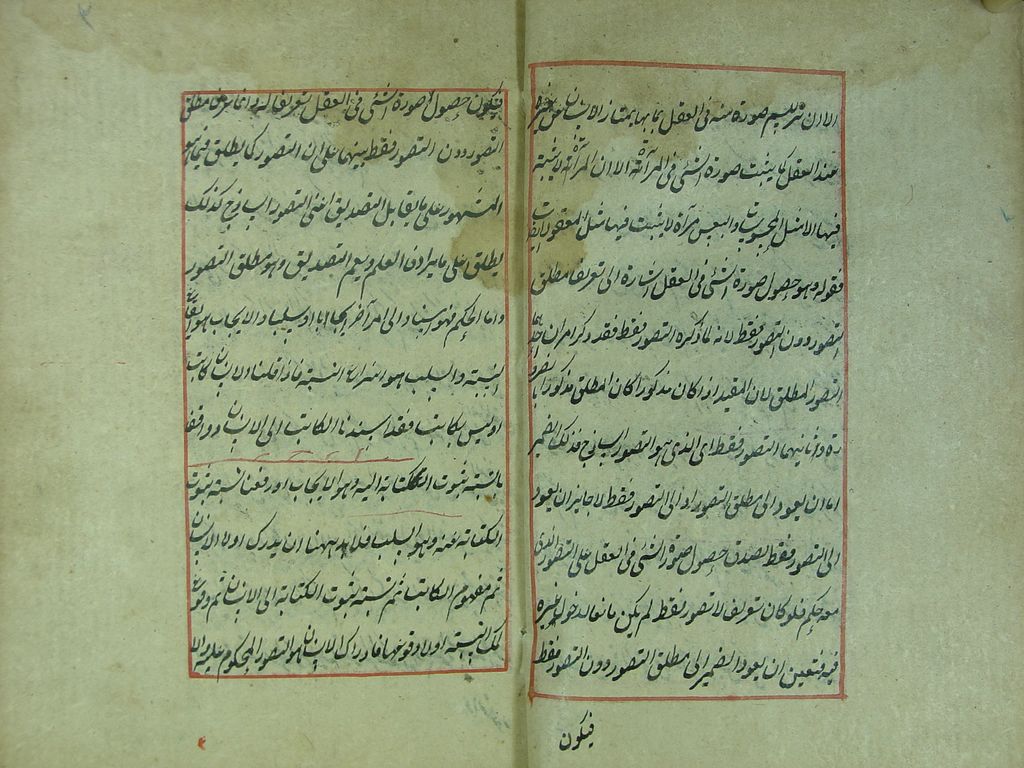 الا ان ترتسم صورة منه فى العقل بها يمتاز الانسان عن غيره
عند العقل كما يثبت صورة الشئ فى المرآة الا ان المرآة لا يثبت
فيها الا مثل المحسوسات والنفس مرآة لا يثبت فيها مثل المعقولات
فقوله وهو حصول صورة الشئ فى العقل اشارة الى تعريف مطلق
التصور دون التصور فقط لانه لما ذكره التصور فقط فقد ذكر امران احدهما
التصور المطلق لان المقيد اذا كان مذكورا كان المطلق مذكورا بالضرورة
وثانيهما التصور فقط اى الذى هو التصور الساذج فذلك الضمير
اما ان يعود الى مطلق التصور او الى التصور فقط لا جايز ان يعود
الى التصور فقط لصدق حصول صورة الشئ فى العقل على التصور الذى
معه حكم فلو كان تعريفا لتصور فقط لم يكن مانعا لدخول غيره
فيه فتعين ان يعود الضمير الى مطلق التصور دون التصور فقط
فيكون
فيكون حصول صورة الشئ فى العقل تعريفا له وانما عرف مطلق
التصور دون التصور فقط تنبيها على ان التصور كما يطلق فيما هو
المشهور على ما يقابل التصديق اعنى التصور الساذج كذلك
يطلق على ما يرادف العلم ويعم التصديق وهو مطلق التصور
واما الحكم فهو اسناد امر الى امر آخر ايجابا او سلبا والايجاب هو ايقاع
النسبة والسلب هو انتزاع النسبة فاذا قلنا الانسان كاتب
او ليس بكاتب فقد اسندنا الكاتب الى الانسان واوقعنا
نسبة ثبوت الكتابة اليه وهو الايجاب او رفعنا نسبة ثبوت
الكتابة عنه وهو السلب فلابد ههنا ان يدرك اولا الانسان
ثم مفهوم الكاتب ثم نسبة ثبوت الكتابة الى الانسان ثم وقوع
تلك النسبة او لا وقوعها فادراك الانسان هو التصور المحكوم عليه والا